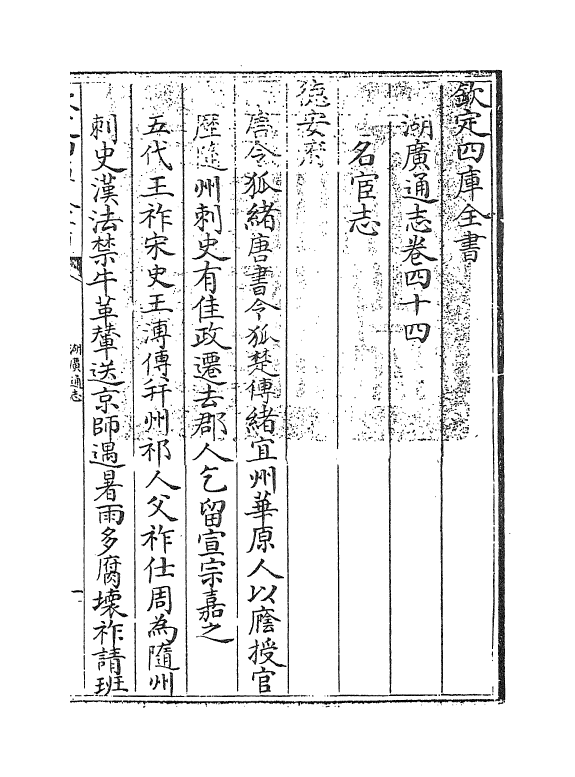 欽定四庫全書
湖廣通志卷四十四
名宦志
德安府
唐令狐緒唐書令狐楚傳緒宜州華原人以廕授官
歷隨州刺史有佳政遷去郡人乞留宣宗嘉之
五代王祚宋史王溥傳幷州祁人父祚仕周為隨州
刺史漢法禁牛革輦送京師遇暑雨多腐壞祚請班
湖廣通志
一